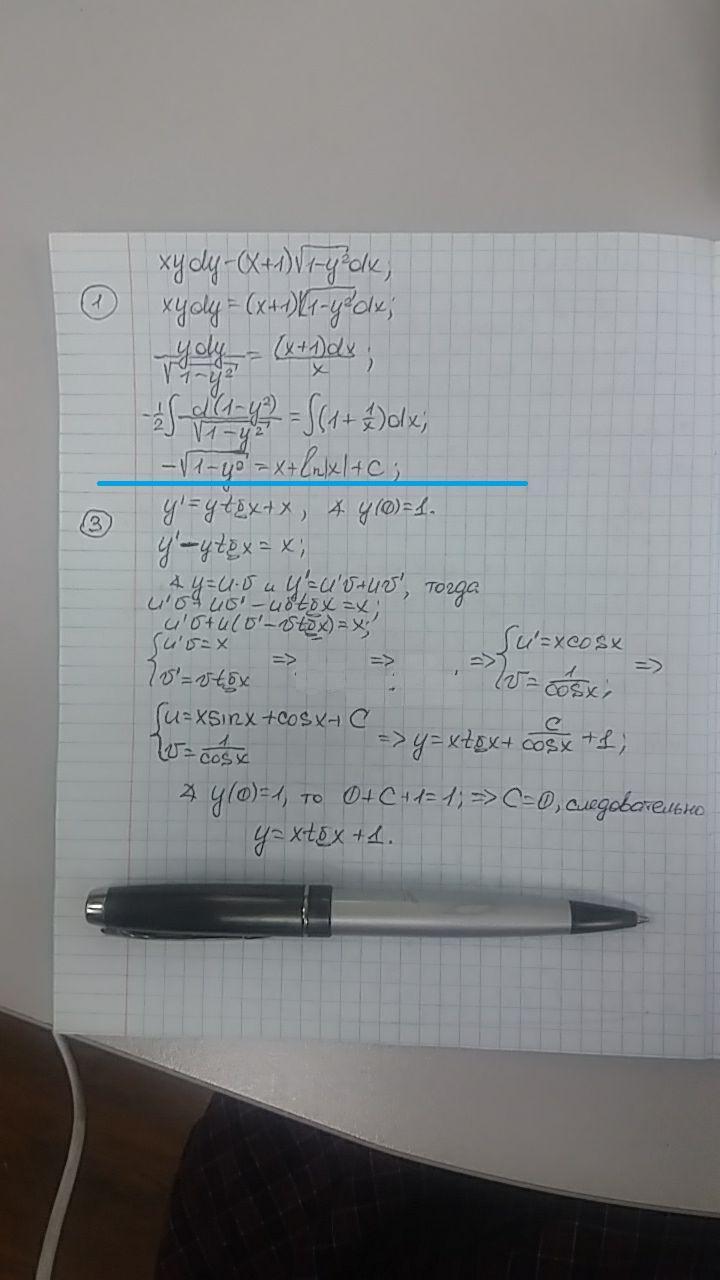 xydy-(x+1)√1-y² dx;
① xydy=(x+1)√1-y² dx;
ydy/√1-y² = (x+1)dx/x;
-1/2∫d(1-y²)/√1-y² = ∫(1+1/x)dx;
-√1-y² = x+ln|x|+C;
③ y'=ytgx+x, ∢ y(0)=1.
y'-ytgx=x;
∢ y=u·v и y'=u'v+uv', тогда
u'v+uv'-uvtgx=x;
u'v+u(v'-vtgx)=x;
{u'v=x
v'=vtgx => ; => ; , => {u'=xcosx
v=1/cosx; =>
{u=xsinx+cosx+C
v=1/cosx => y=xtgx+C/cosx+1;
∢ y(0)=1, то 0+C+1=1; => C=0, следовательно
y=xtgx+1.